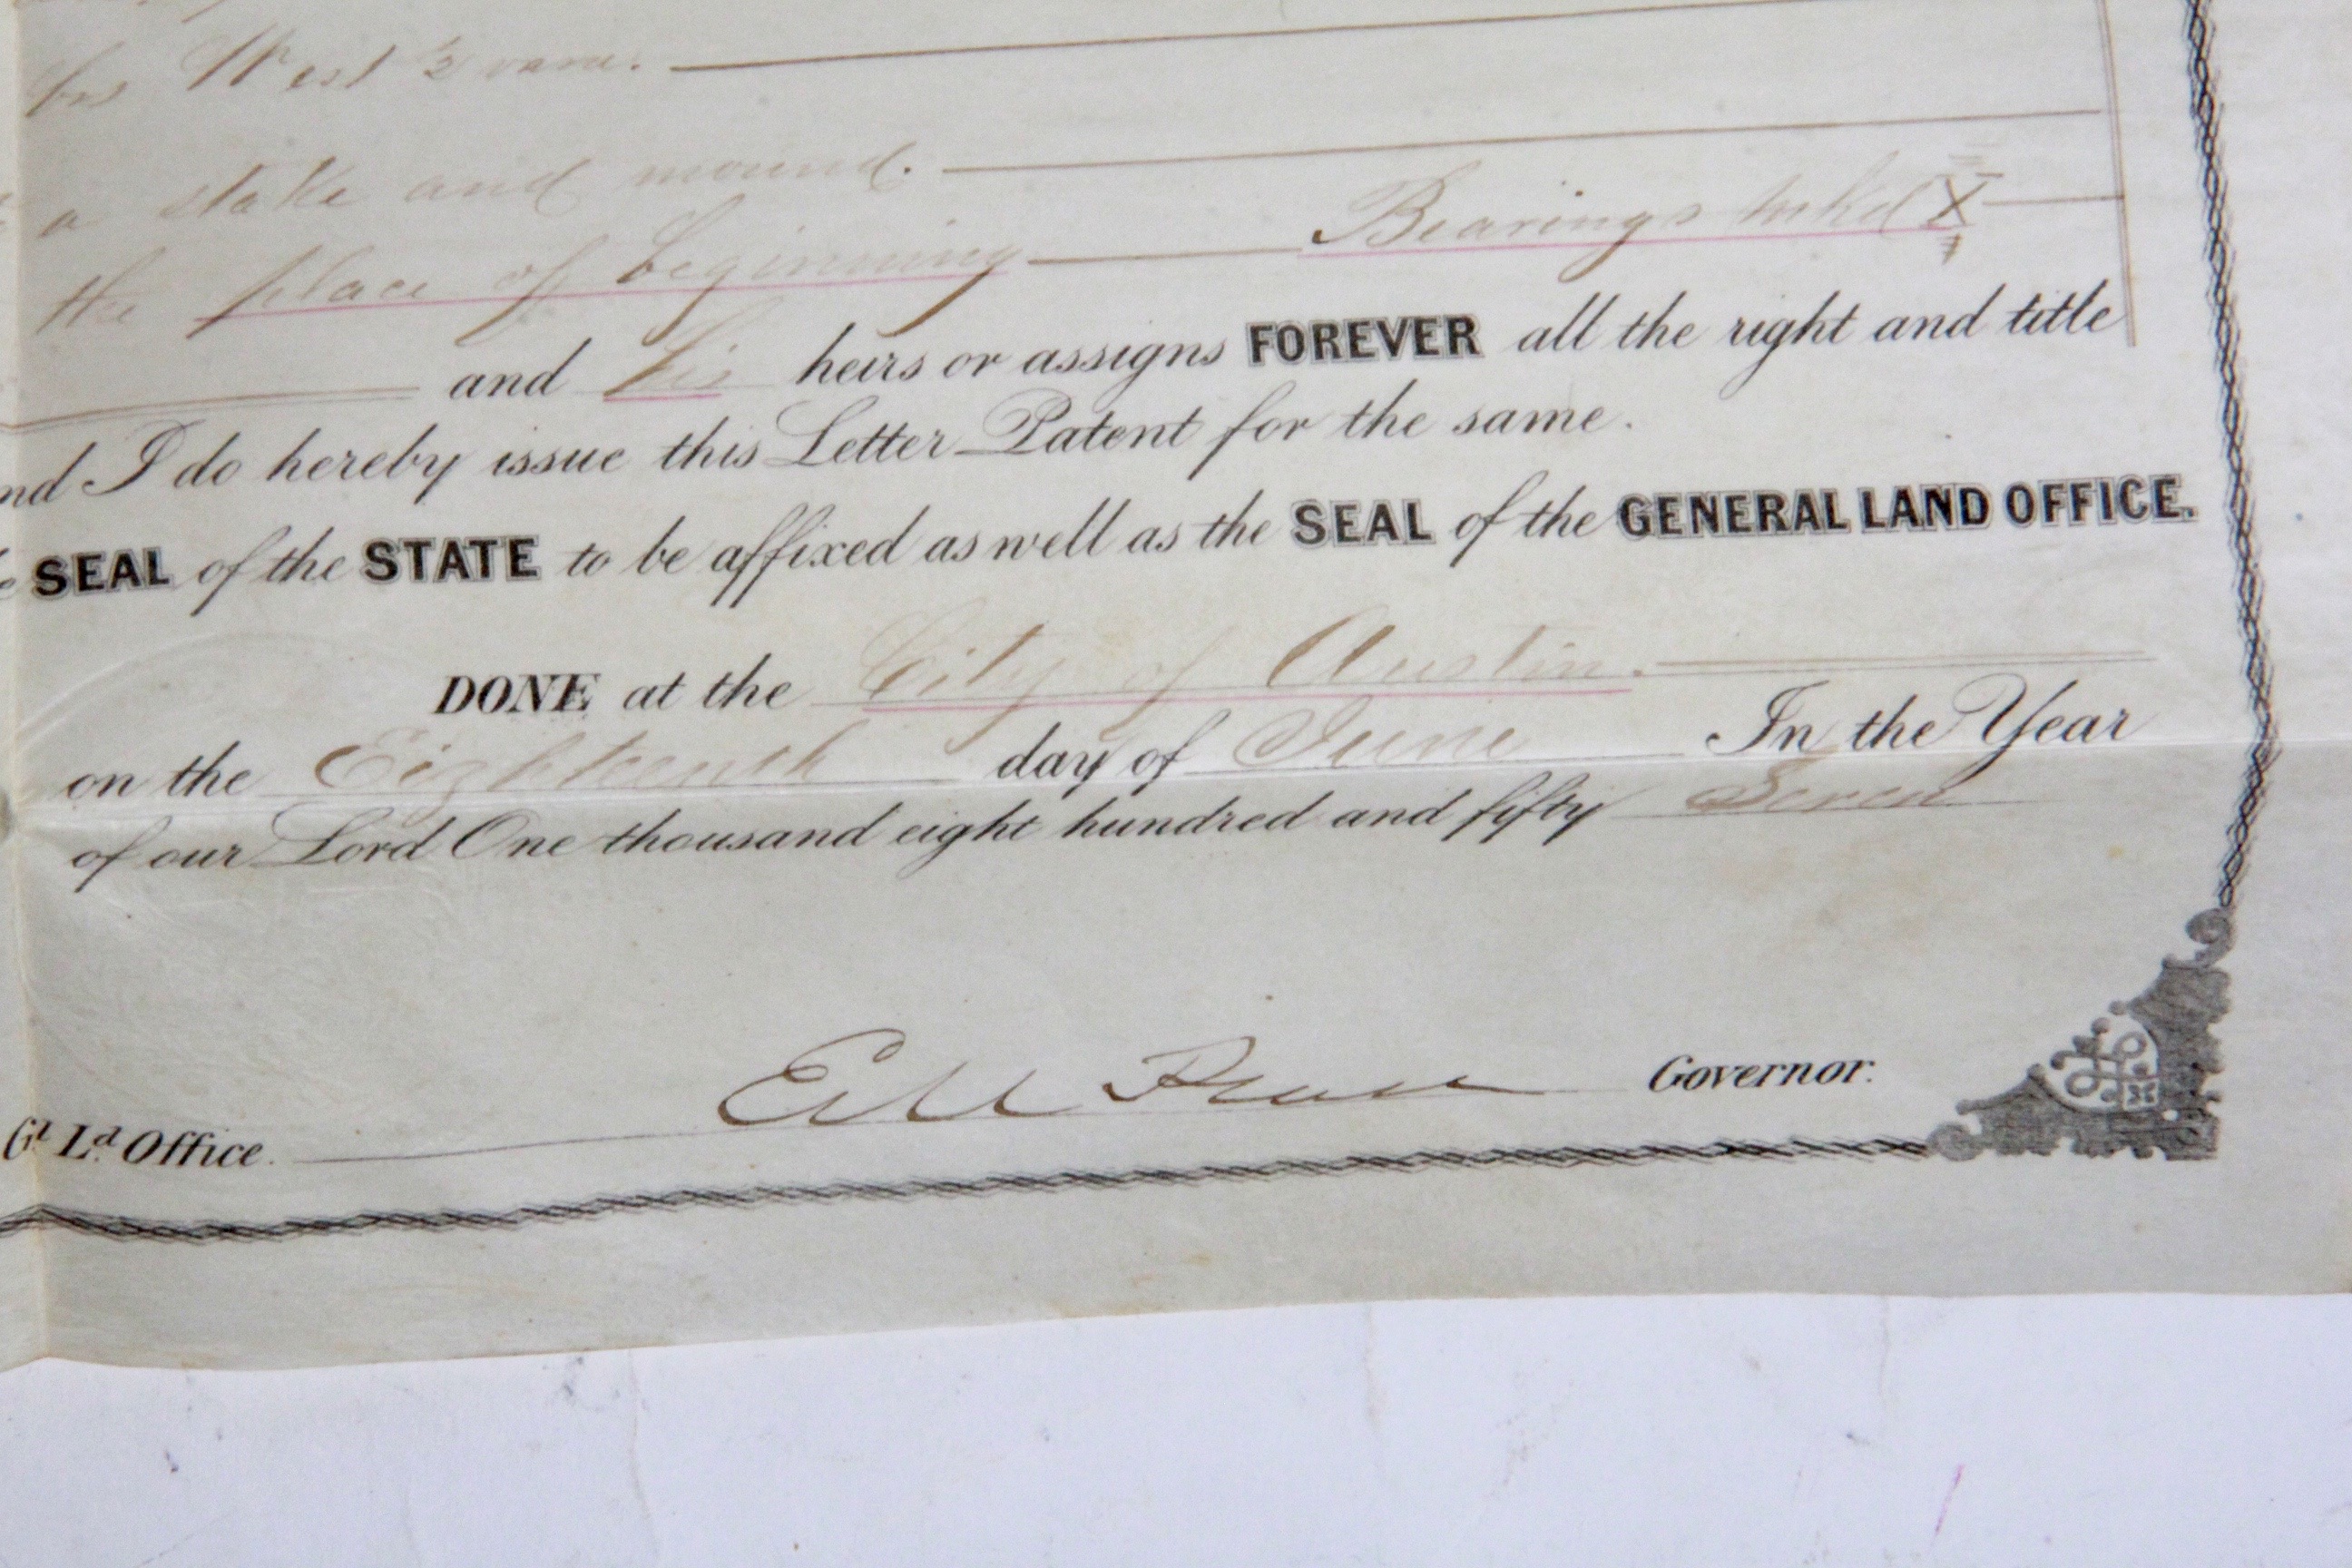 West ½ vara.
a stake and mound.
the place of beginning Bearings mkd X
and his heirs or assigns FOREVER all the right and title
nd I do hereby issue this Letter Patent for the same.
SEAL of the STATE to be affixed as well as the SEAL of the GENERAL LAND OFFICE.
DONE at the City of Austin.
on the Eighteenth day of June In the Year
of our Lord One thousand eight hundred and fifty Seven
E M Pease Governor.
Gl Ld Office.